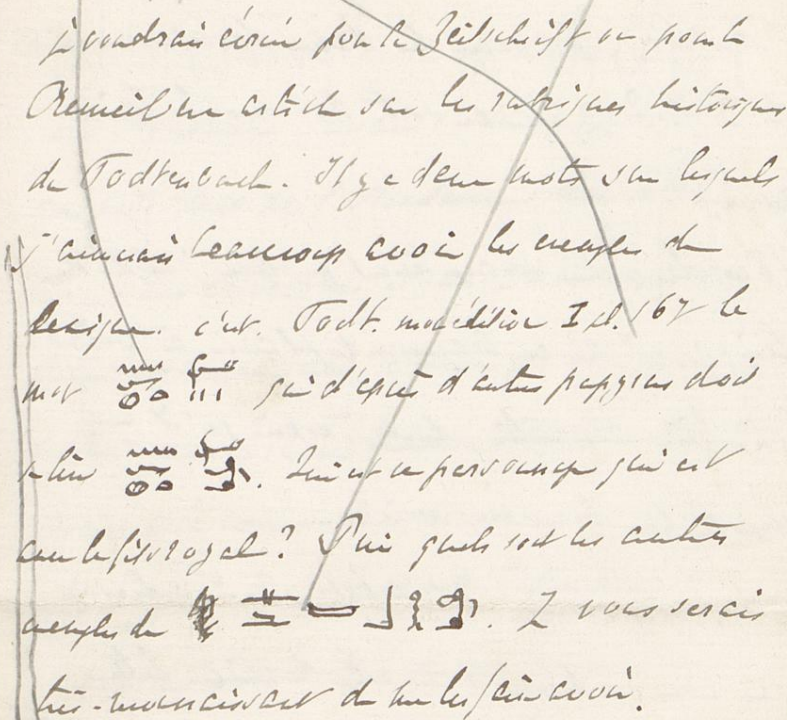 je voudrais écrire pour la Zeitschrift ou pour le
Recueil un article sur les rubriques historiques
du Todtenbuch. Il y a deux mots sur lesquels
j'aimerais beaucoup avoir les exemples du
lexique. c'est. Todt. mon édition I pl. 167 le
mot qui d'après d'autres papyrus doit
se lire . Qui est ce personnage qui est
avec le fils royal? Puis quels sont les autres
exemples de . Je vous serais
très-reconnaissant de me les faire avoir.